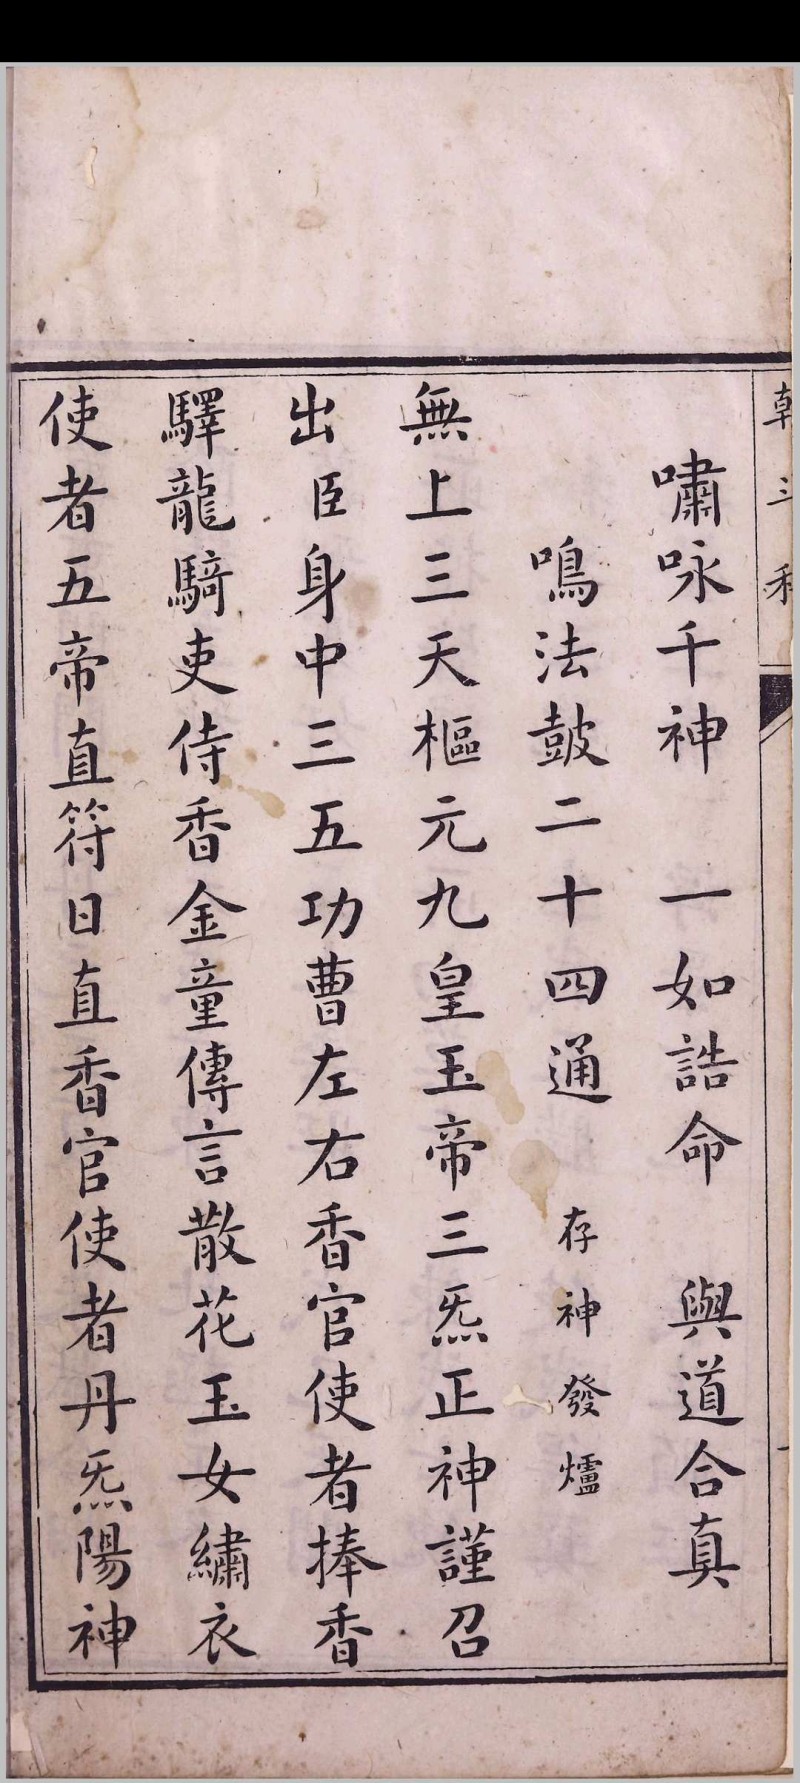 朝三科
嘯咏千神　一如誥命　與道合真
鳴法鼓二十四通　存神發爐
無上三天樞元九皇玉帝三炁正神謹召
出臣身中三五功曹左右香官使者捧香
驛龍騎吏侍香金童傳言散花玉女繡衣
使者五帝直符日直香官使者丹炁陽神